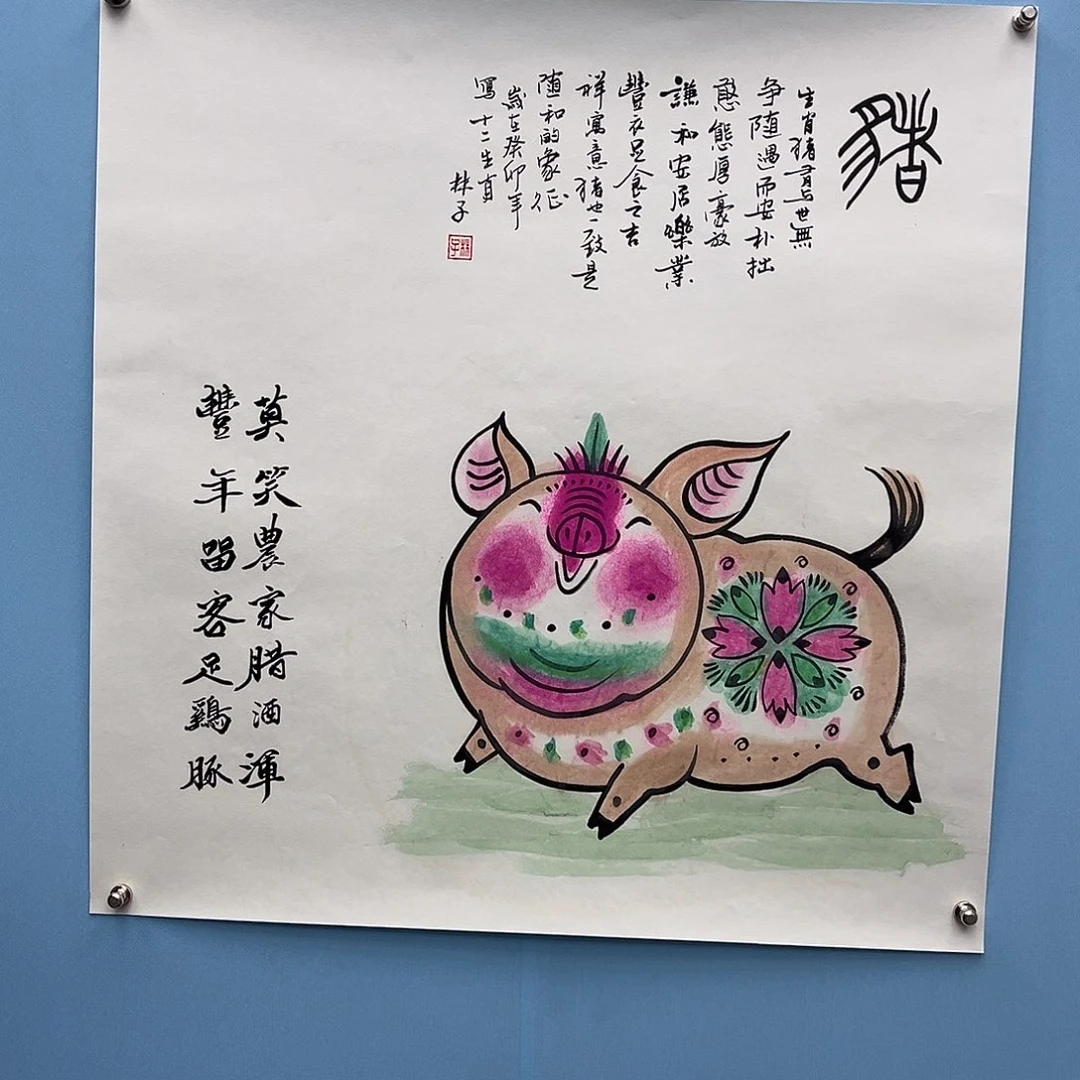 豬
生肖猪与世無
争随遇而安朴拙
憨態厚豪放
謙和安居樂業
豐衣足食之吉
祥寓意猪也一致是
随和的象征
歲在癸卯年
寫十二生肖
林子
林子
莫笑農家腊酒渾
豐年留客足鷄豚